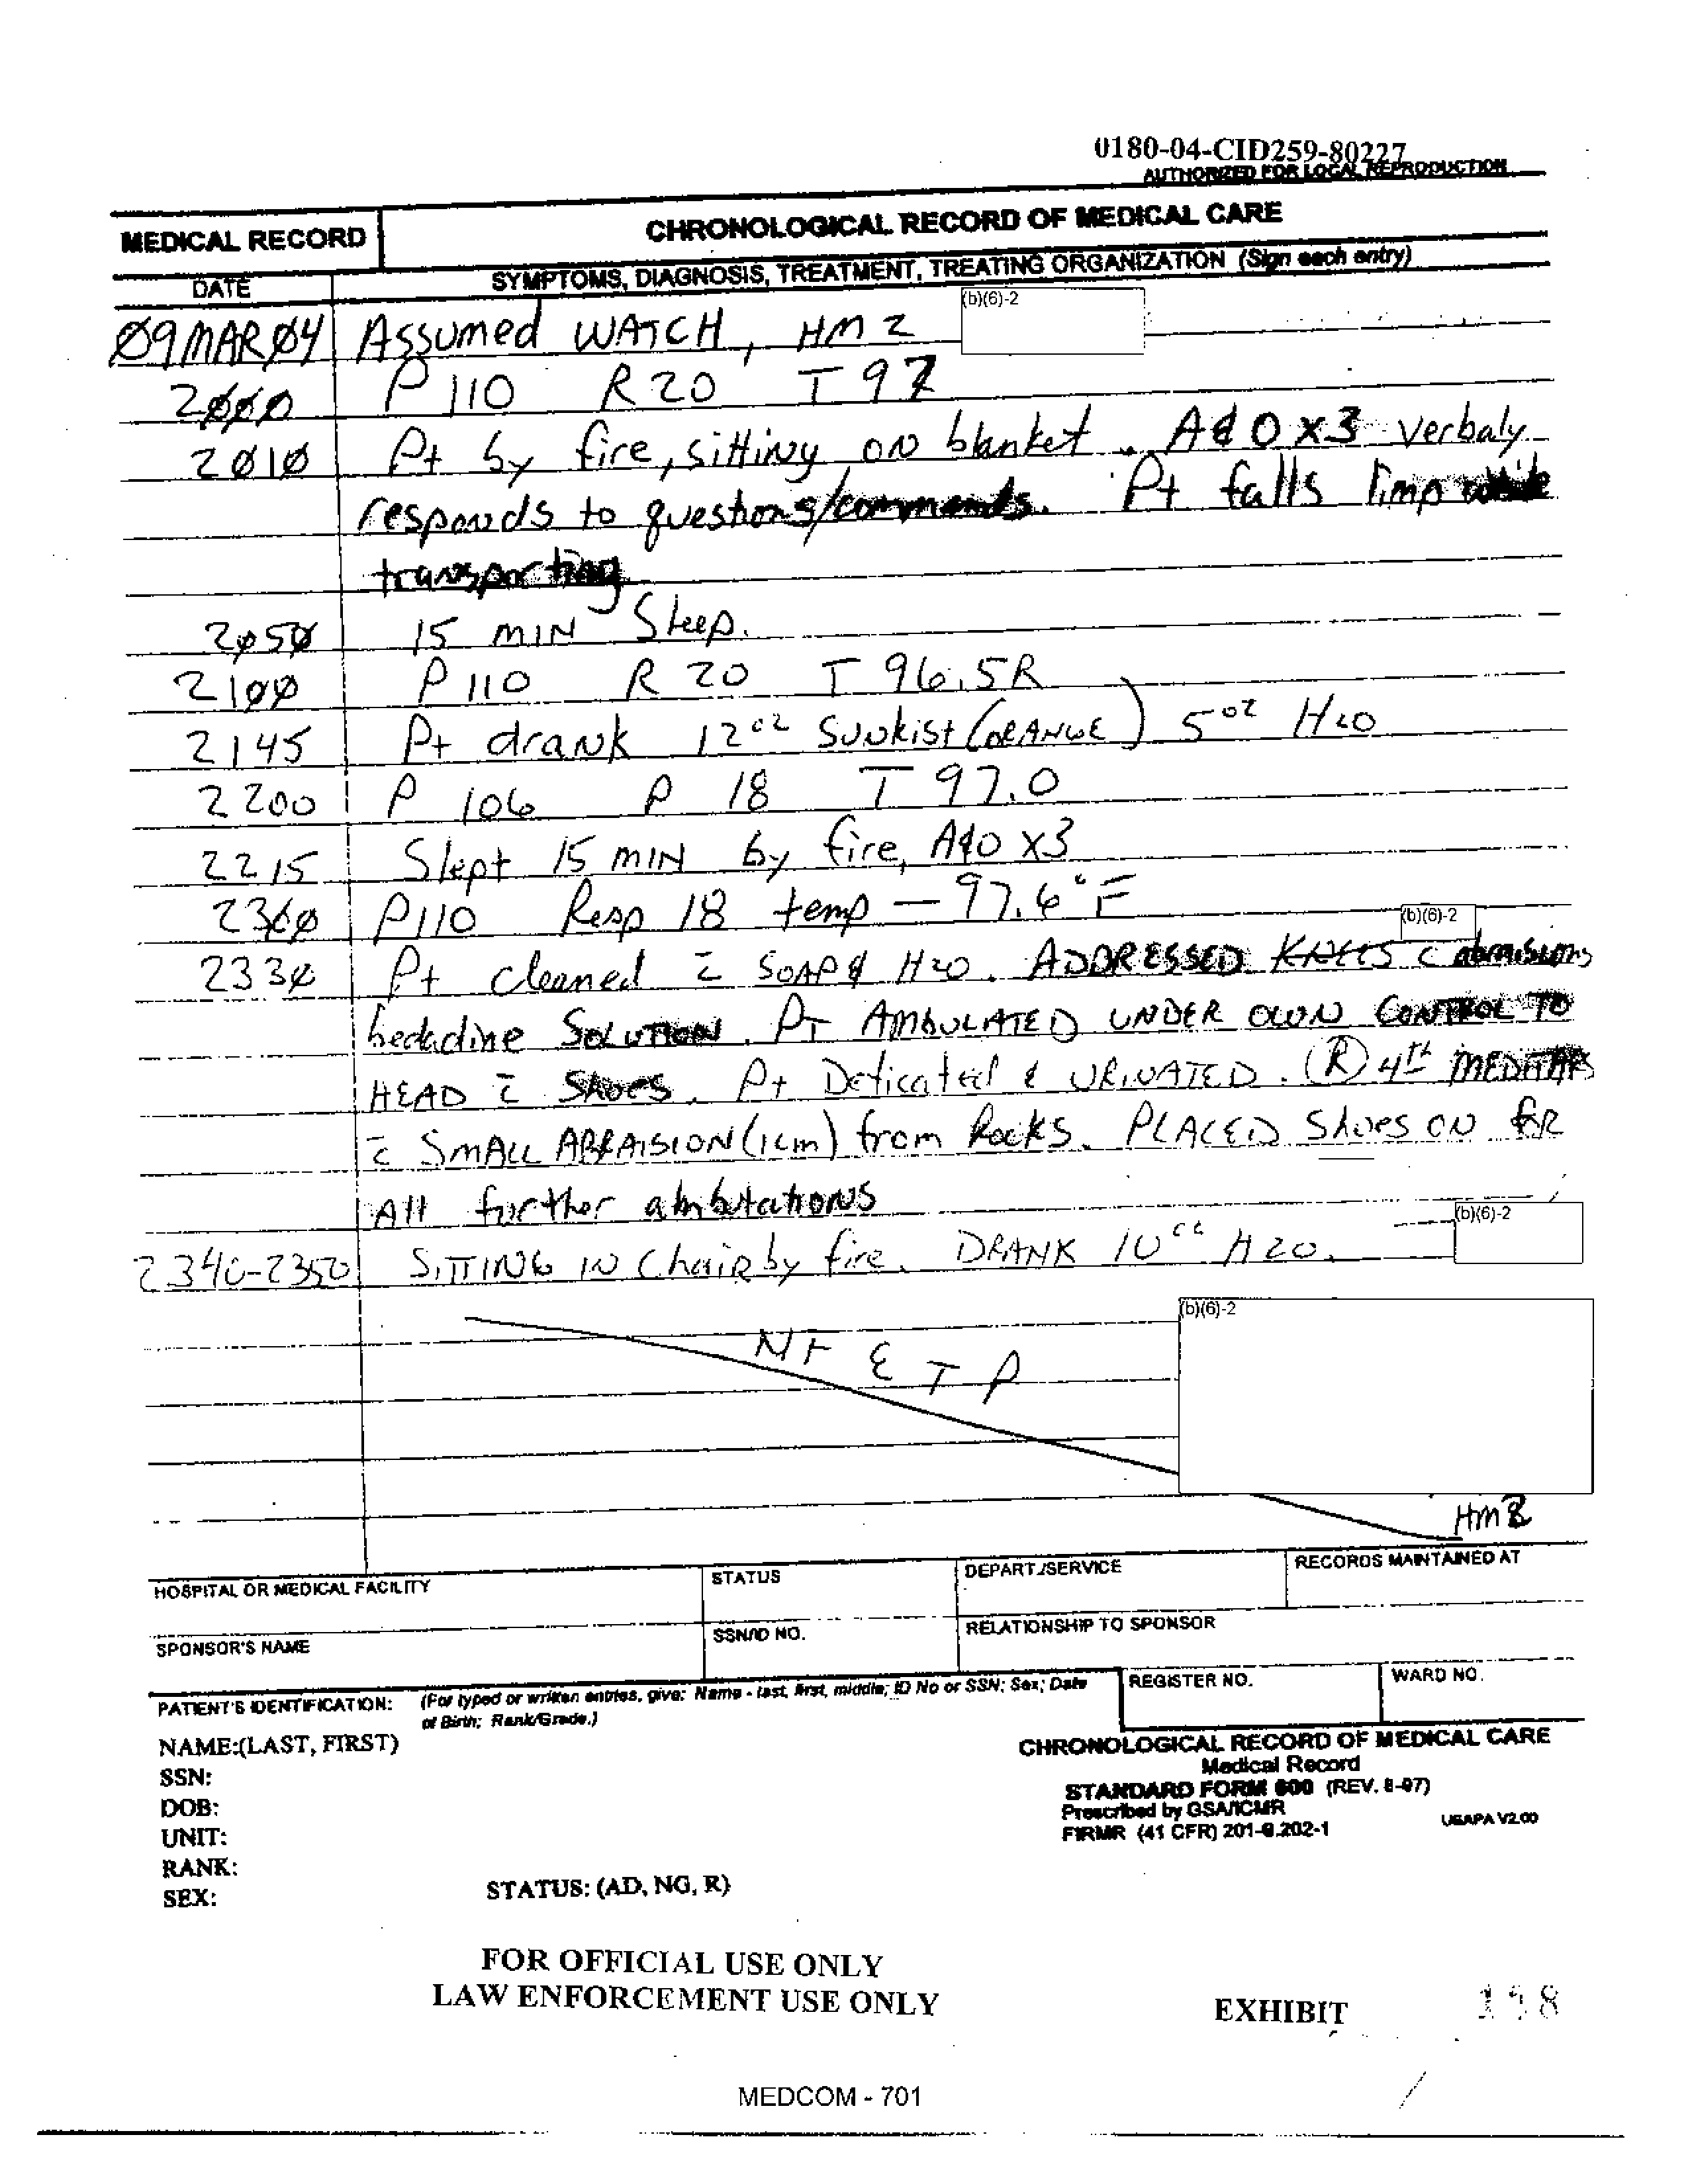 0180-04-CID259-80227
AUTHORIZED FOR LOCAL REPRODUCTION
MEDICAL RECORD
CHRONOLOGICAL RECORD OF MEDICAL CARE
DATE
SYMPTOMS, DIAGNOSIS, TREATMENT, TREATING ORGANIZATION (Sign each entry)
09MAR04 Assumed WATCH, HM2 (b)(6)-2
2000 P 110 R 20 T 97
2010 Pt by fire, sitting on blanket. A&O x3 verbaly
responds to questions/commands. Pt falls limp while
transporting
2050 15 MIN Sleep.
2100 P 110 R 20 T 96.5R
2145 Pt drank 12oz SUNKIST (ORANGE) 5oz H2O
2200 P 106 R 18 T 97.0
2215 Slept 15 MIN by fire, A&O x3
2300 P110 Resp 18 temp - 97.6°F
(b)(6)-2
2330 Pt cleaned c SOAP & H2O. ADDRESSED KNEES c
bedadine SOLUTION. PT AMBULATED UNDER OWN CONTROL TO
HEAD c SHOES. Pt Deficated & URINATED. (R) 4th
c SMALL ABRAISION (1cm) from Rocks. PLACED SHOES ON FOR
All further
2340-2350 SITTING IN Chair by fire. DRANK 10cc H2O.
(b)(6)-2
(b)(6)-2
HM3
HOSPITAL OR MEDICAL FACILITY
STATUS
DEPART./SERVICE
RECORDS MAINTAINED AT
SPONSOR'S NAME
SSN/ID NO.
RELATIONSHIP TO SPONSOR
PATIENT'S IDENTIFICATION: (For typed or written entries, give: Name - last, first, middle; ID No or SSN; Sex; Date
of Birth; Rank/Grade.)
REGISTER NO.
WARD NO.
NAME:(LAST, FIRST)
SSN:
DOB:
UNIT:
RANK:
SEX:
STATUS: (AD, NG, R)
CHRONOLOGICAL RECORD OF MEDICAL CARE
Medical Record
STANDARD FORM 600 (REV. 6-97)
Prescribed by GSA/ICMR
FIRMR (41 CFR) 201-9.202-1
USAPA V2.00
FOR OFFICIAL USE ONLY
LAW ENFORCEMENT USE ONLY
EXHIBIT
MEDCOM - 701